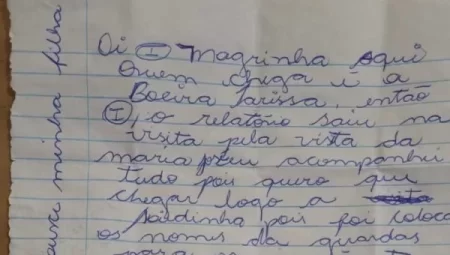 Oi I Magrinha aqui
Quem chega é a
Boeira Larissa, então
I, o relatório saiu na
visita pela vista da
maria preu acompanhei
tudo pois quero que
chegar logo a
saidinha pois foi coloca
os nomes da guardas
minha filha